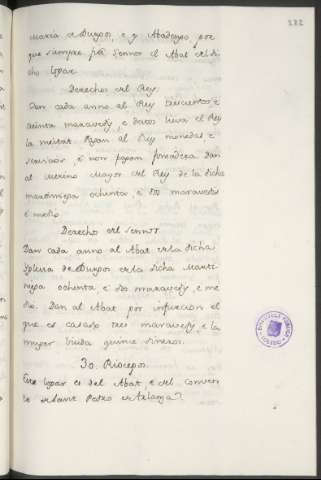 182
Maria de Burgos, e y Abadengo, por
que siempre fue Sennor el Abat del di
cho logar.
Derechos del Rey.
Dan cada anno al Rey descientos e
treinta maravedis, e destos lieva el Rey
la meitat. Pagan al Rey monedas e
servicios, e non pagan fonsadera. Dan
al Merino Mayor del Rey de la dicha
martiniega ochenta e dos maravedis
e medio.
Derecho del sennor.
Dan cada anno al Abat de la dicha
Iglesia de Burgos de la dicha Marti
niega ochenta e dos maravedis, e me
dio. Dan al Abat por infurcion el
que es casado tres maravedis, e la
muger biuda quince dineros.
30. Riocepos.
Este logar es del Abat, e del conven
to de Sant Pedro de Arlanza